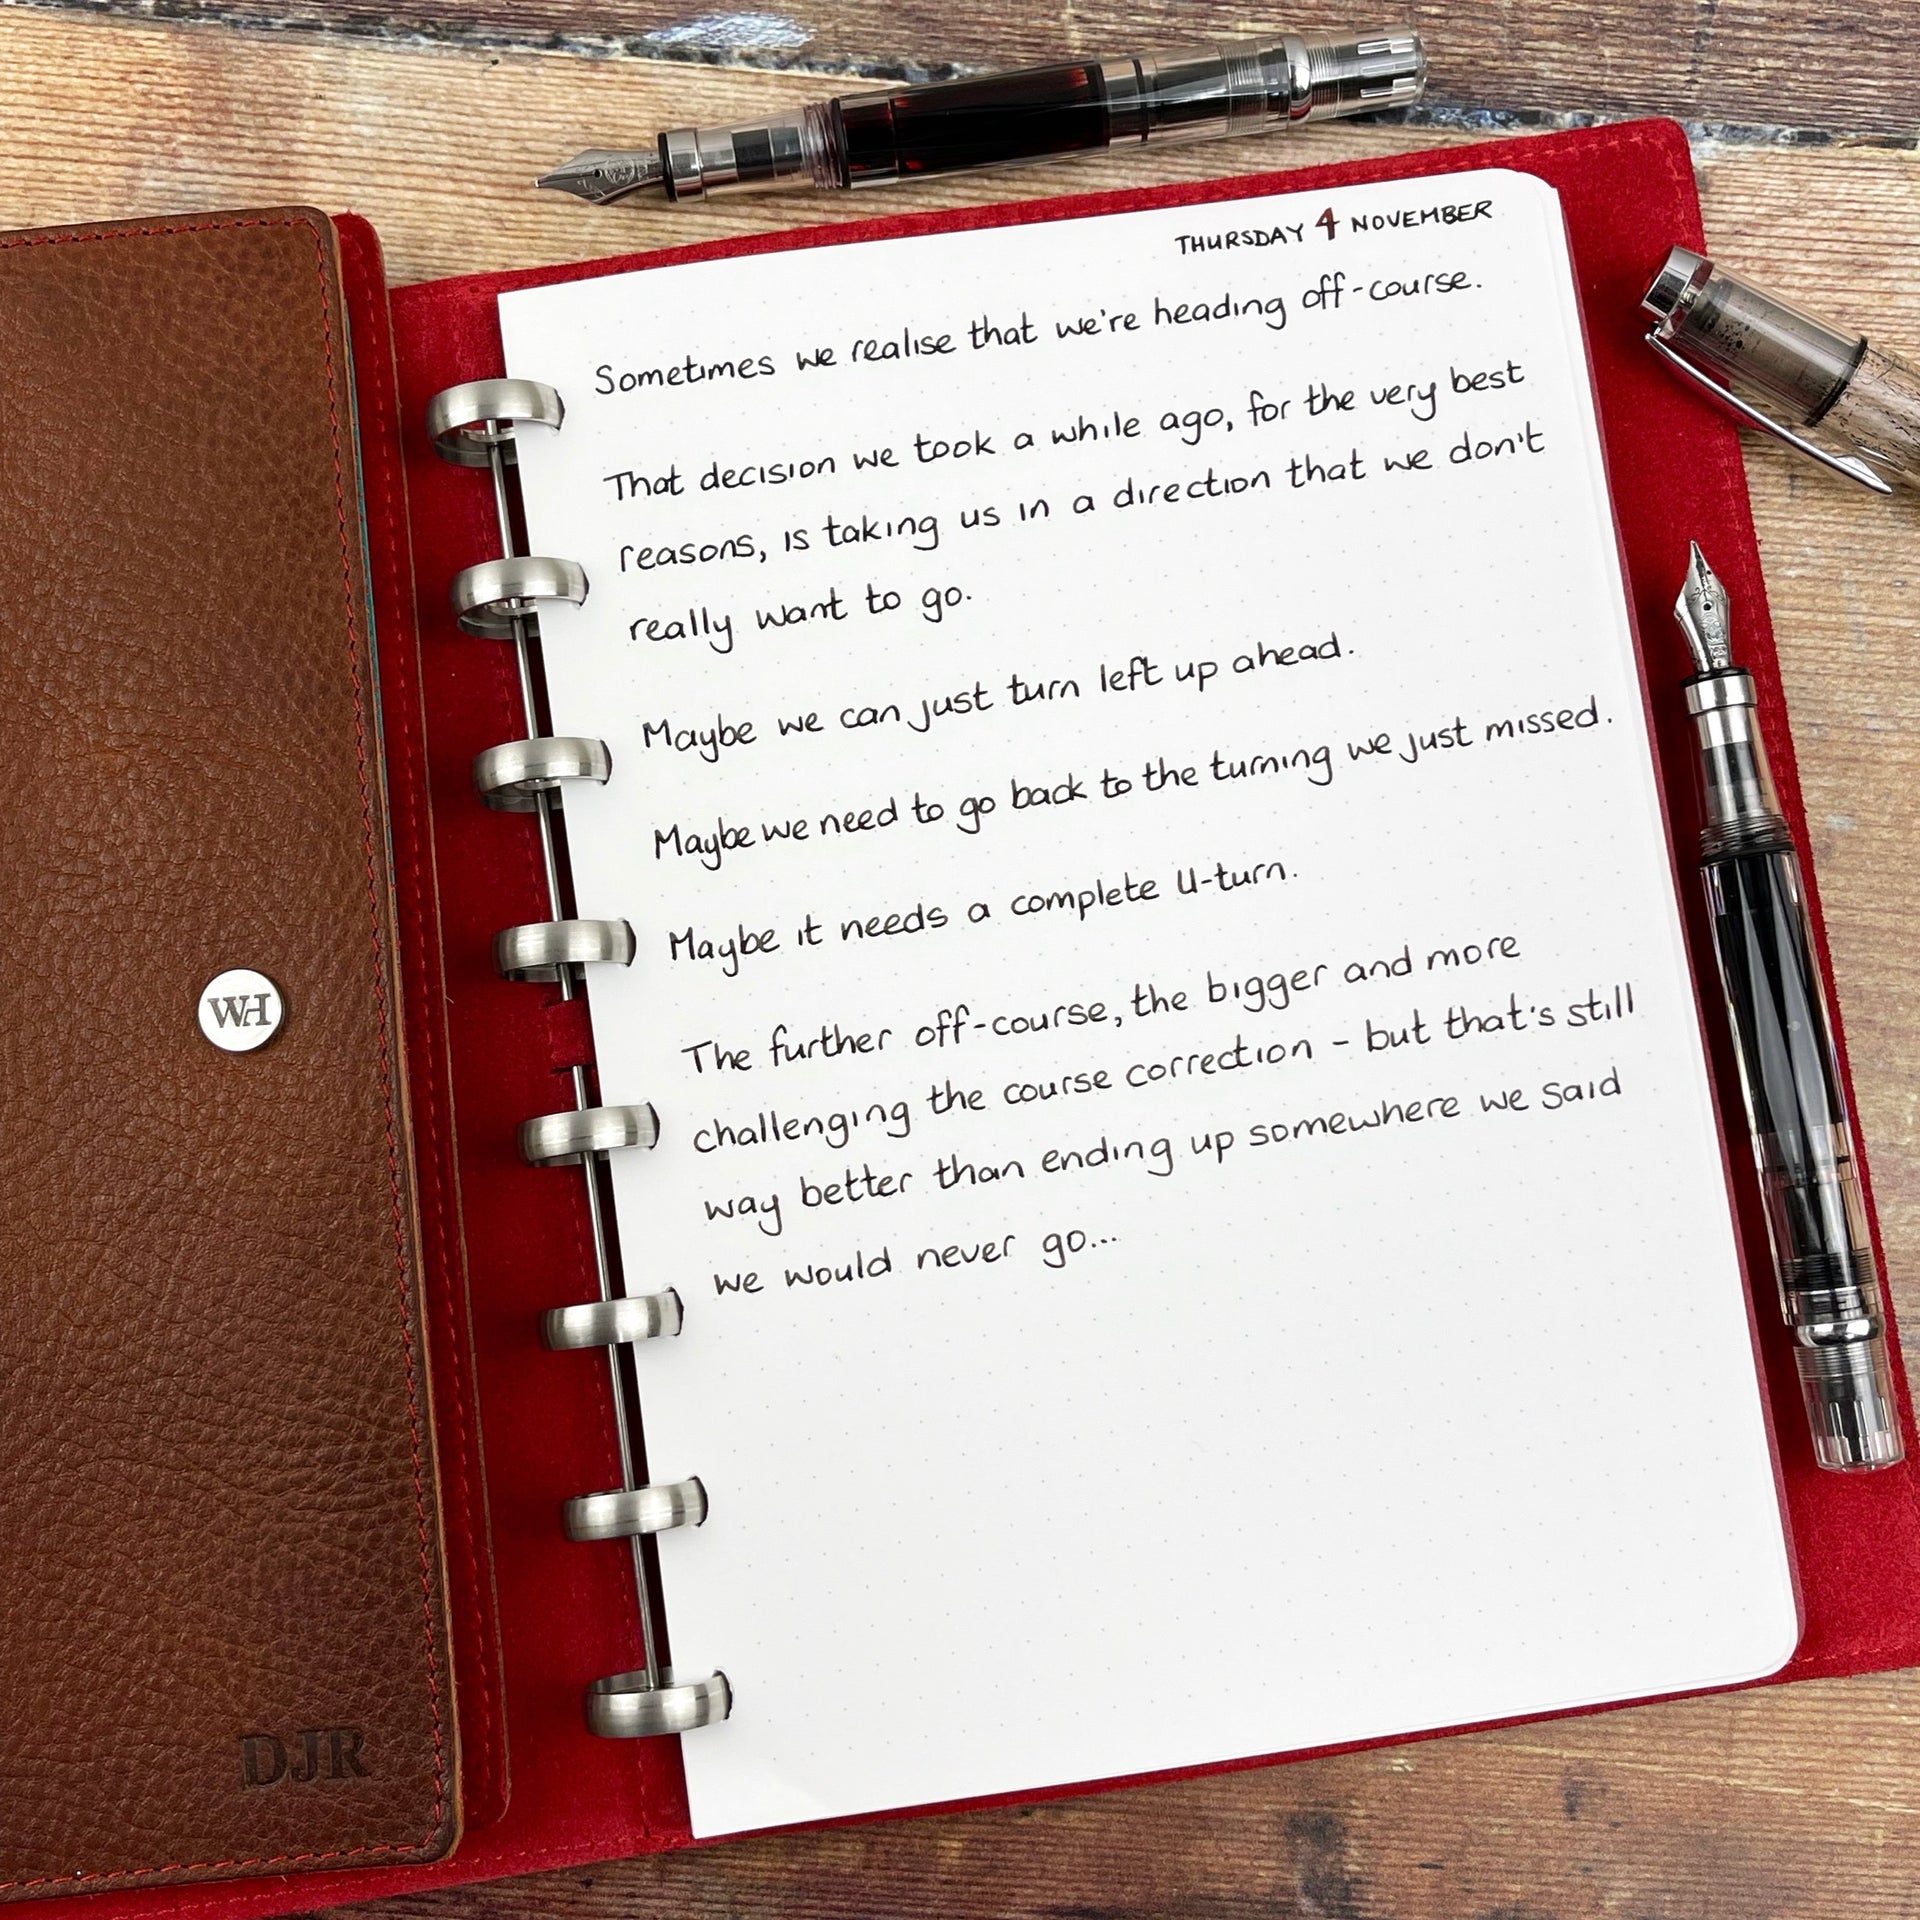 THURSDAY 4 NOVEMBER
Sometimes we realise that we're heading off-course.
That decision we took a while ago, for the very best
reasons, is taking us in a direction that we don't
really want to go.
Maybe we can just turn left up ahead.
Maybe we need to go back to the turning we just missed.
Maybe it needs a complete U-turn.
The further off-course, the bigger and more
challenging the course correction - but that's still
way better than ending up somewhere we said
we would never go...
WH
DJR